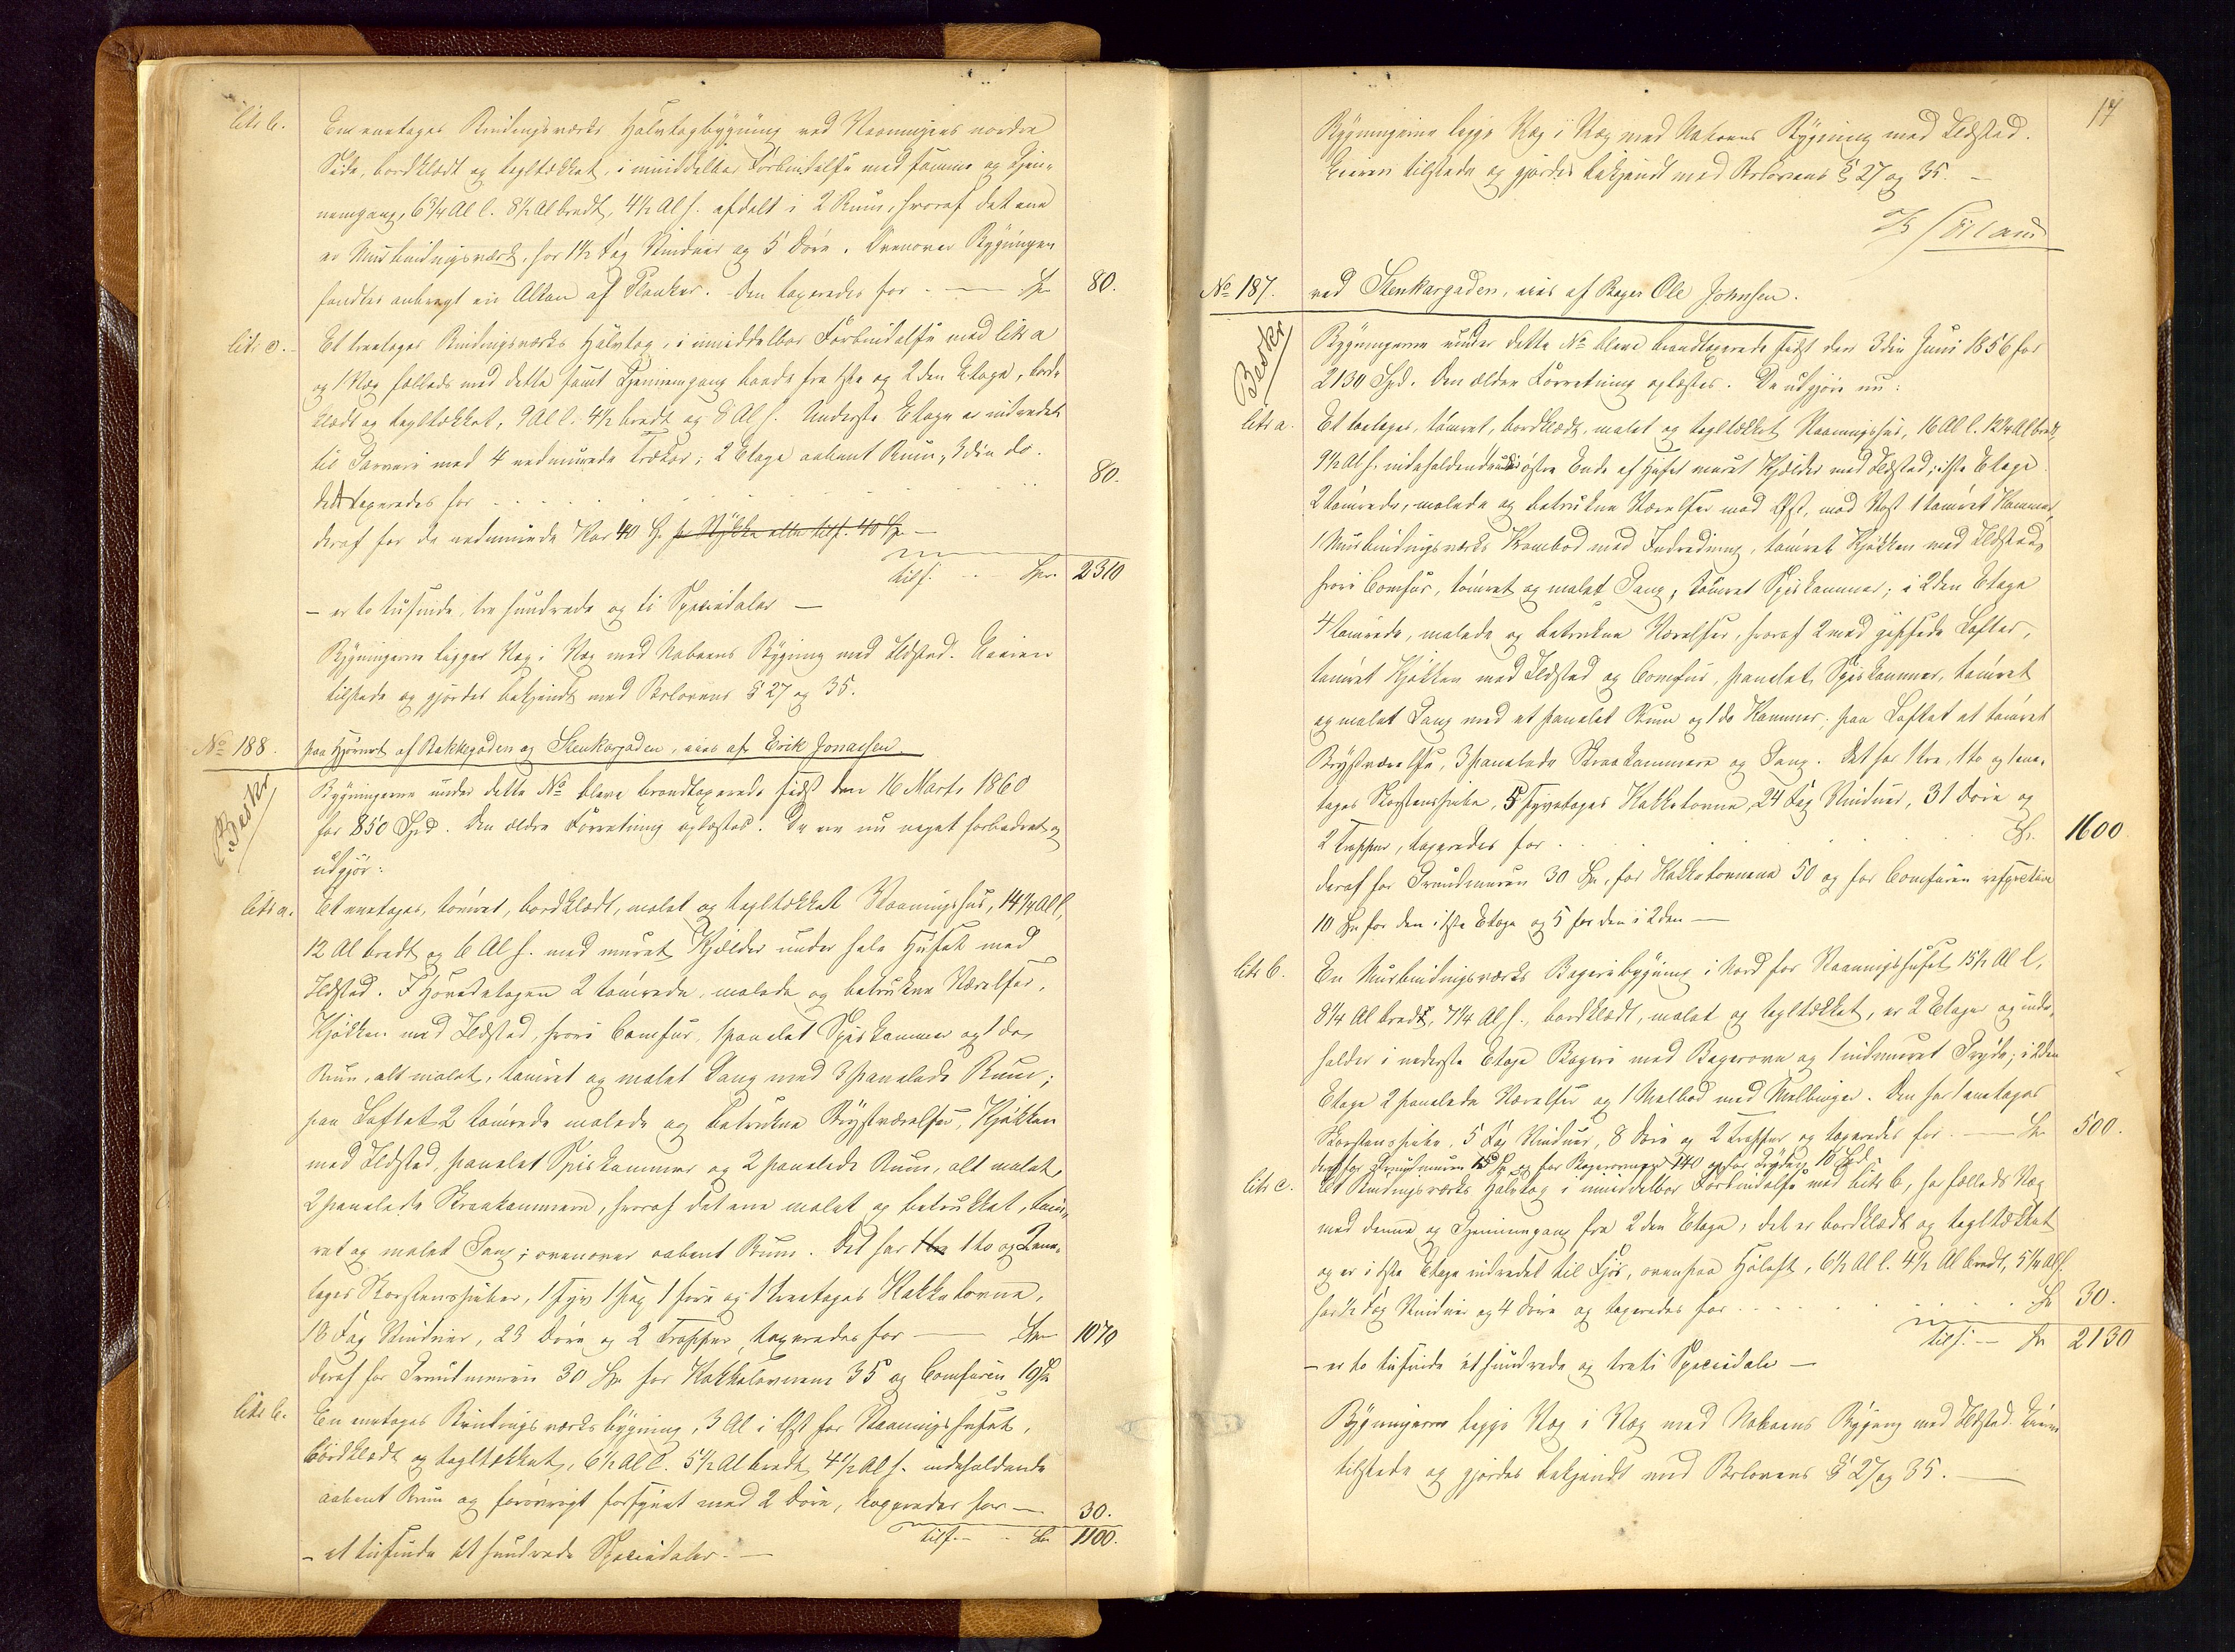 Litr b. En eenetages Bindingsværks Halvtagbygning ved Vaaningens nordre
Side, bordklædt og tegltækket, i umiddelbar Forbindelse med samme og Gjen-
nemgang, 6 3/4 Al l. 8 1/2 Al bredt, 4 1/2 Al h. afdelt i 2 Rum, hvoraf det ene
er Murbindingsværk, har 1 1/2 Fag Vinduer og 5 Døre. Ovenover Bygningen
fandtes anbragt en Altan af Planker. Den taxeredes for - — Spr 80.
Litr c. Et treetages Bindingsværks Halvtag, i umiddelbar Forbindelse med Litr a
og 1 Væg fælleds med dette samt Gjennemgang baade fra 1ste og 2den Etage, bord-
klædt og tegltækket, 9 Al l. 4 1/2 bredt og 8 Al h. Underste Etage er indredet
til Garveri med 4 nedmurede Trækar; 2 Etage aabent Rum, 3die do.
det taxeredes for 80.
deraf for de nedmurede Kar 40 Sp. pr Stykke eller tils. 40 Sp —
tils. - - Spr. 2310
— er to tusinde, tre hundrede og ti Speciedaler —
Bygningerne ligger Væg i Væg med Naboens Bygning med Ildsted. Eieren
tilstede og gjordes bekjendt med Brlovens § 27 og 35.
No 188. paa Hjørnet af Bakkegaden og Stenkargaden, eies af Erik Jonassen.
Beskr
Bygningerne under dette No bleve brandtaxerede sidst den 16 Marts 1860
for 850 Spd. Den ældre Forretning oplæstes. De ere nu noget forbedret og
udgjør:
Litr a. Et eenetages, tømret, bordklædt, malet og tegltækket Vaaningshus, 14 1/4 Al l,
12 Al bredt og 6 Al h. med muret Kjelder under hele Huset med
Ildsted. I Hovedetagen 2 tømrede, malede og betrukne Værelser,
Kjøkken med Ildsted, hvori Comfur, 1 panelet Spiskammer og 1 do
Rum, alt malet, tømret og malet Gang med 3 panelede Rum;
paa Loftet 2 tømrede malede og betrukne Brystværelser, Kjøkken
med Ildsted, panelet Spiskammer og 2 panelede Rum, alt malet,
2 panelede Skraakammere, hvoraf det ene malet og betrukket, tøm-
ret og malet Gang; ovenover aabent Rum. Det har 1 tre 1 to og 2 ene-
tages Skorstenspiber, 1 fyr 1 sex 1 fire og 1 treetages Kakkelovne,
18 Fag Vinduer, 23 Døre og 2 Trapper, taxeredes for —— Spr 1070
deraf for Grundmuren 30 Sp. for Kakkelovnene 35 og Comfuren 10 Sp
Litr b. En eenetages Bindingsværksbygning, 3 Al i Øst for Vaaningshuset,
bordklædt og tegltækket, 6 1/2 Al l. 5 1/2 Al bredt 4 1/2 Al h. indeholdende
aabent Rum og forøvrigt forsynet med 2 Døre, taxeredes for — 30.
tils. - - Sp. 1100.
— et tusinde et hundrede Speciedaler. —
17
Bygningerne ligge Væg i Væg med Naboens Bygning med Ildsted.
Eieren tilstede og gjordes bekjendt med Brlovens § 27 og 35. —
No 187. ved Stenkargaden, eies af Bager Ole Johnsen.
Beskr
Bygningerne under dette No bleve brandtaxerede sidst den 3die Juni 1856 for
2130 Spd. Den ældre Forretning oplæstes. De udgjøre nu:
Litr a. Et toetages, tømret, bordklædt, malet og tegltækket Vaaningshus, 16 Al l. 12 1/4 Al bredt,
9 1/2 Al h. indeholdende i østre Ende af Huset muret Kjelder med Ildsted; i 1ste Etage
2 tømrede, malede og betrukne Værelser mod Øst, mod Vest 1 tømret Kammer,
1 Murbindingsværks Krambod med Indredning, tømret Kjøkken med Ildsted,
hvori Comfur, tømret og malet Gang, tømret Spiskammer; i 2den Etage
4 tømrede, malede og betrukne Værelser, hvoraf 2 med gipsede Lofter,
tømret Kjøkken med Ildsted og Comfur, panelet Spiskammer, tømret
og malet Gang med et panelet Rum og 1 do Kammer; paa Loftet et tømret
Brystværelse, 3 panelede Skraakammere og Gang. Det har 1 tre, 1 to og 1 ene-
tages Skorstenspibe, 5 tyvetages Kakkelovne, 24 Fag Vinduer, 31 Døre og
2 Trapper, taxeredes for Sp. 1600
deraf for Grundmuren 30 Sp, for Kakkelovnene 50 og for Comfuren respective
10 Sp for den i 1ste Etage og 5 for den i 2den —
Litr b. En Murbindingsværks Bageribygning i Nord for Vaaningshuset 15 1/2 Al l,
8 1/4 Al bredt, 7 1/4 Al h., bordklædt, malet og tegltækket, er 2 Etager og inde-
holder i nederste Etage Bageri med Bagerovn og 1 indmuret Gryde; i 2den
Etage 2 panelede Værelser og 1 Melbod med Melbinger. Den har 1 enetages
Skorstenspibe, 5 Fag Vinduer, 8 Døre og 2 Trapper og taxeredes for — Sp 500.
deraf for Grundmuren 15 Sp og for Bagerovnen 140 og for Gryden 10 Spd.
Litr c. Et Bindingsværks Halvtag i umiddelbar Forbindelse med Litr b, har fælleds Væg
med denne og Gjennemgang fra 2den Etage, det er bordklædt og tegltækket
og er i 1ste Etage indredet til Fjøs, ovenpaa Høloft, 6 1/2 Al l. 4 1/2 Al bredt, 5 1/4 Al h.
har 1/2 Fag Vinduer og 4 Døre og taxeredes for Sp 30.
tils. — Sp 2130
— er to tusinde et hundrede og treti Speciedaler —
Bygningerne ligge Væg i Væg med Naboens Bygning med Ildsted. Eieren
tilstede og gjordes bekjendt med Brlovens § 27 og 35. —